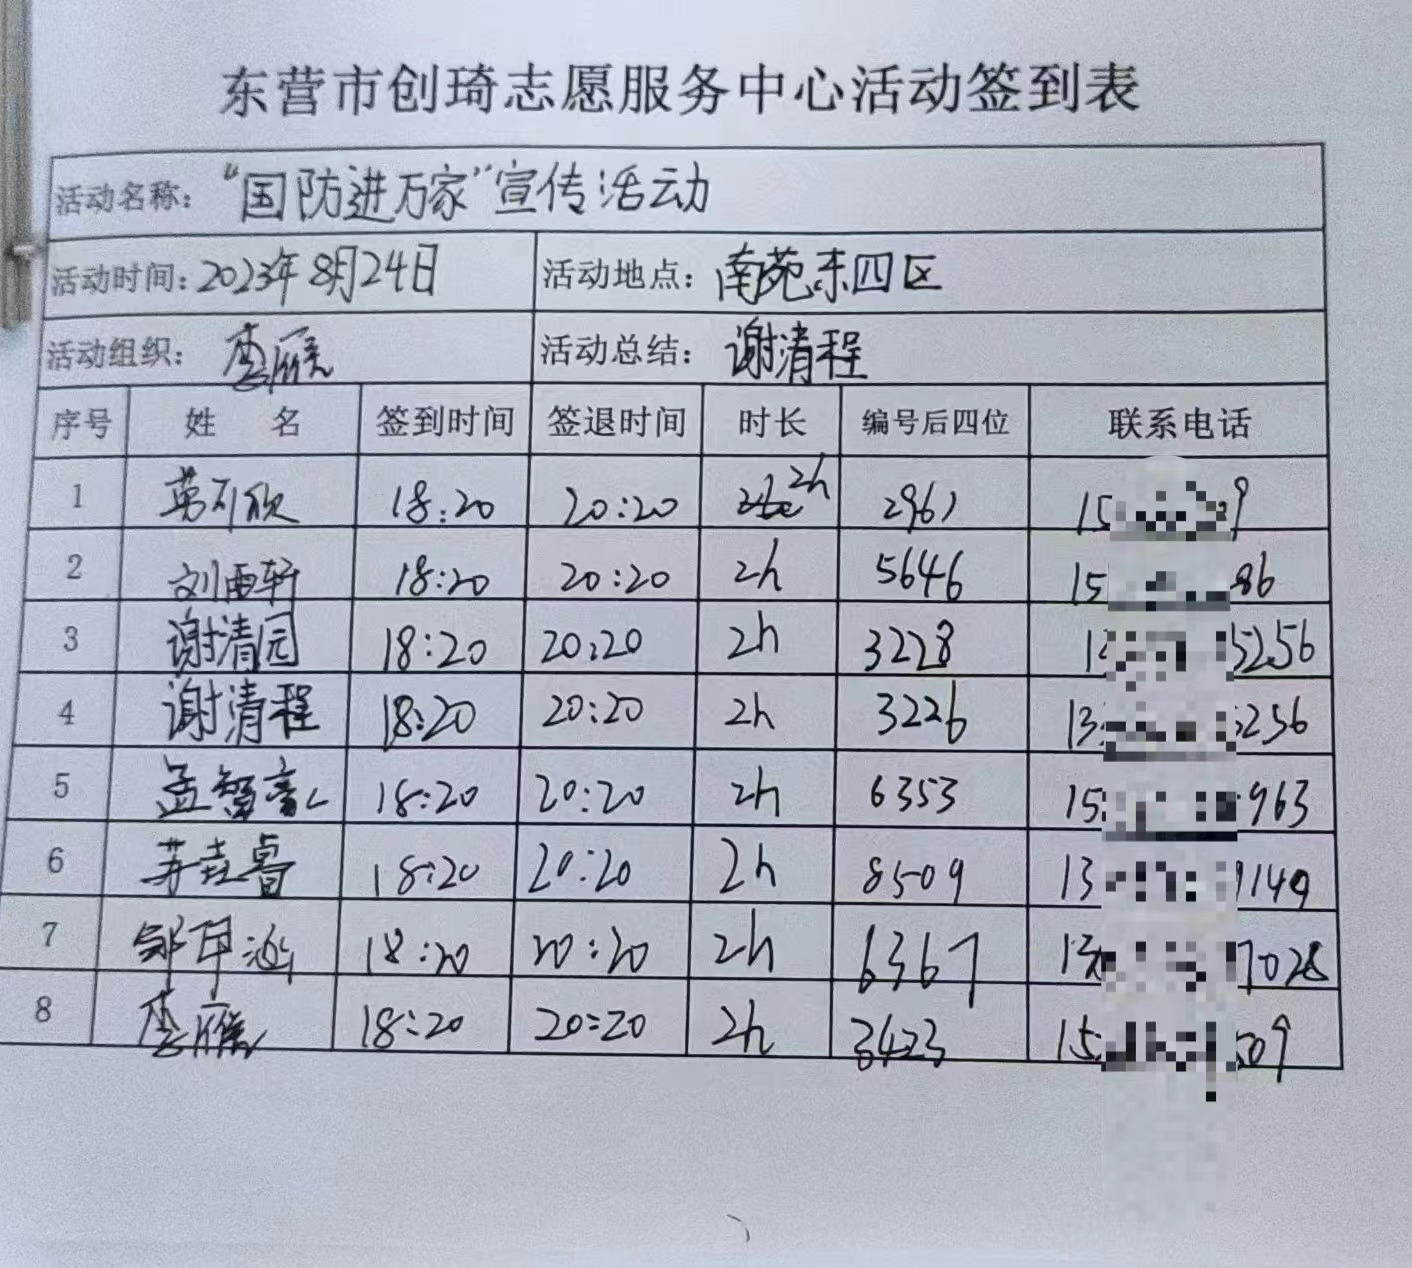 东营市创琦志愿服务中心活动签到表
活动名称：“国防进万家”宣传活动
活动时间：2023年8月24日 活动地点：南苑东四区
活动组织：李雁 活动总结：谢清程
序号 姓 名 签到时间 签退时间 时长 编号后四位 联系电话
1 18:20 20:20 2h 2961 15 9
2 刘雨轩 18:20 20:20 2h 5646 15 86
3 谢清园 18:20 20:20 2h 3228 5256
4 谢清程 18:20 20:20 2h 3226 13 5256
5 孟智 18:20 20:20 2h 6353 15 963
6 18:20 20:20 2h 8509 13 1149
7 18:20 20:20 2h 6367 13 7028
8 李雁 18:20 20:20 2h 3423 15 509